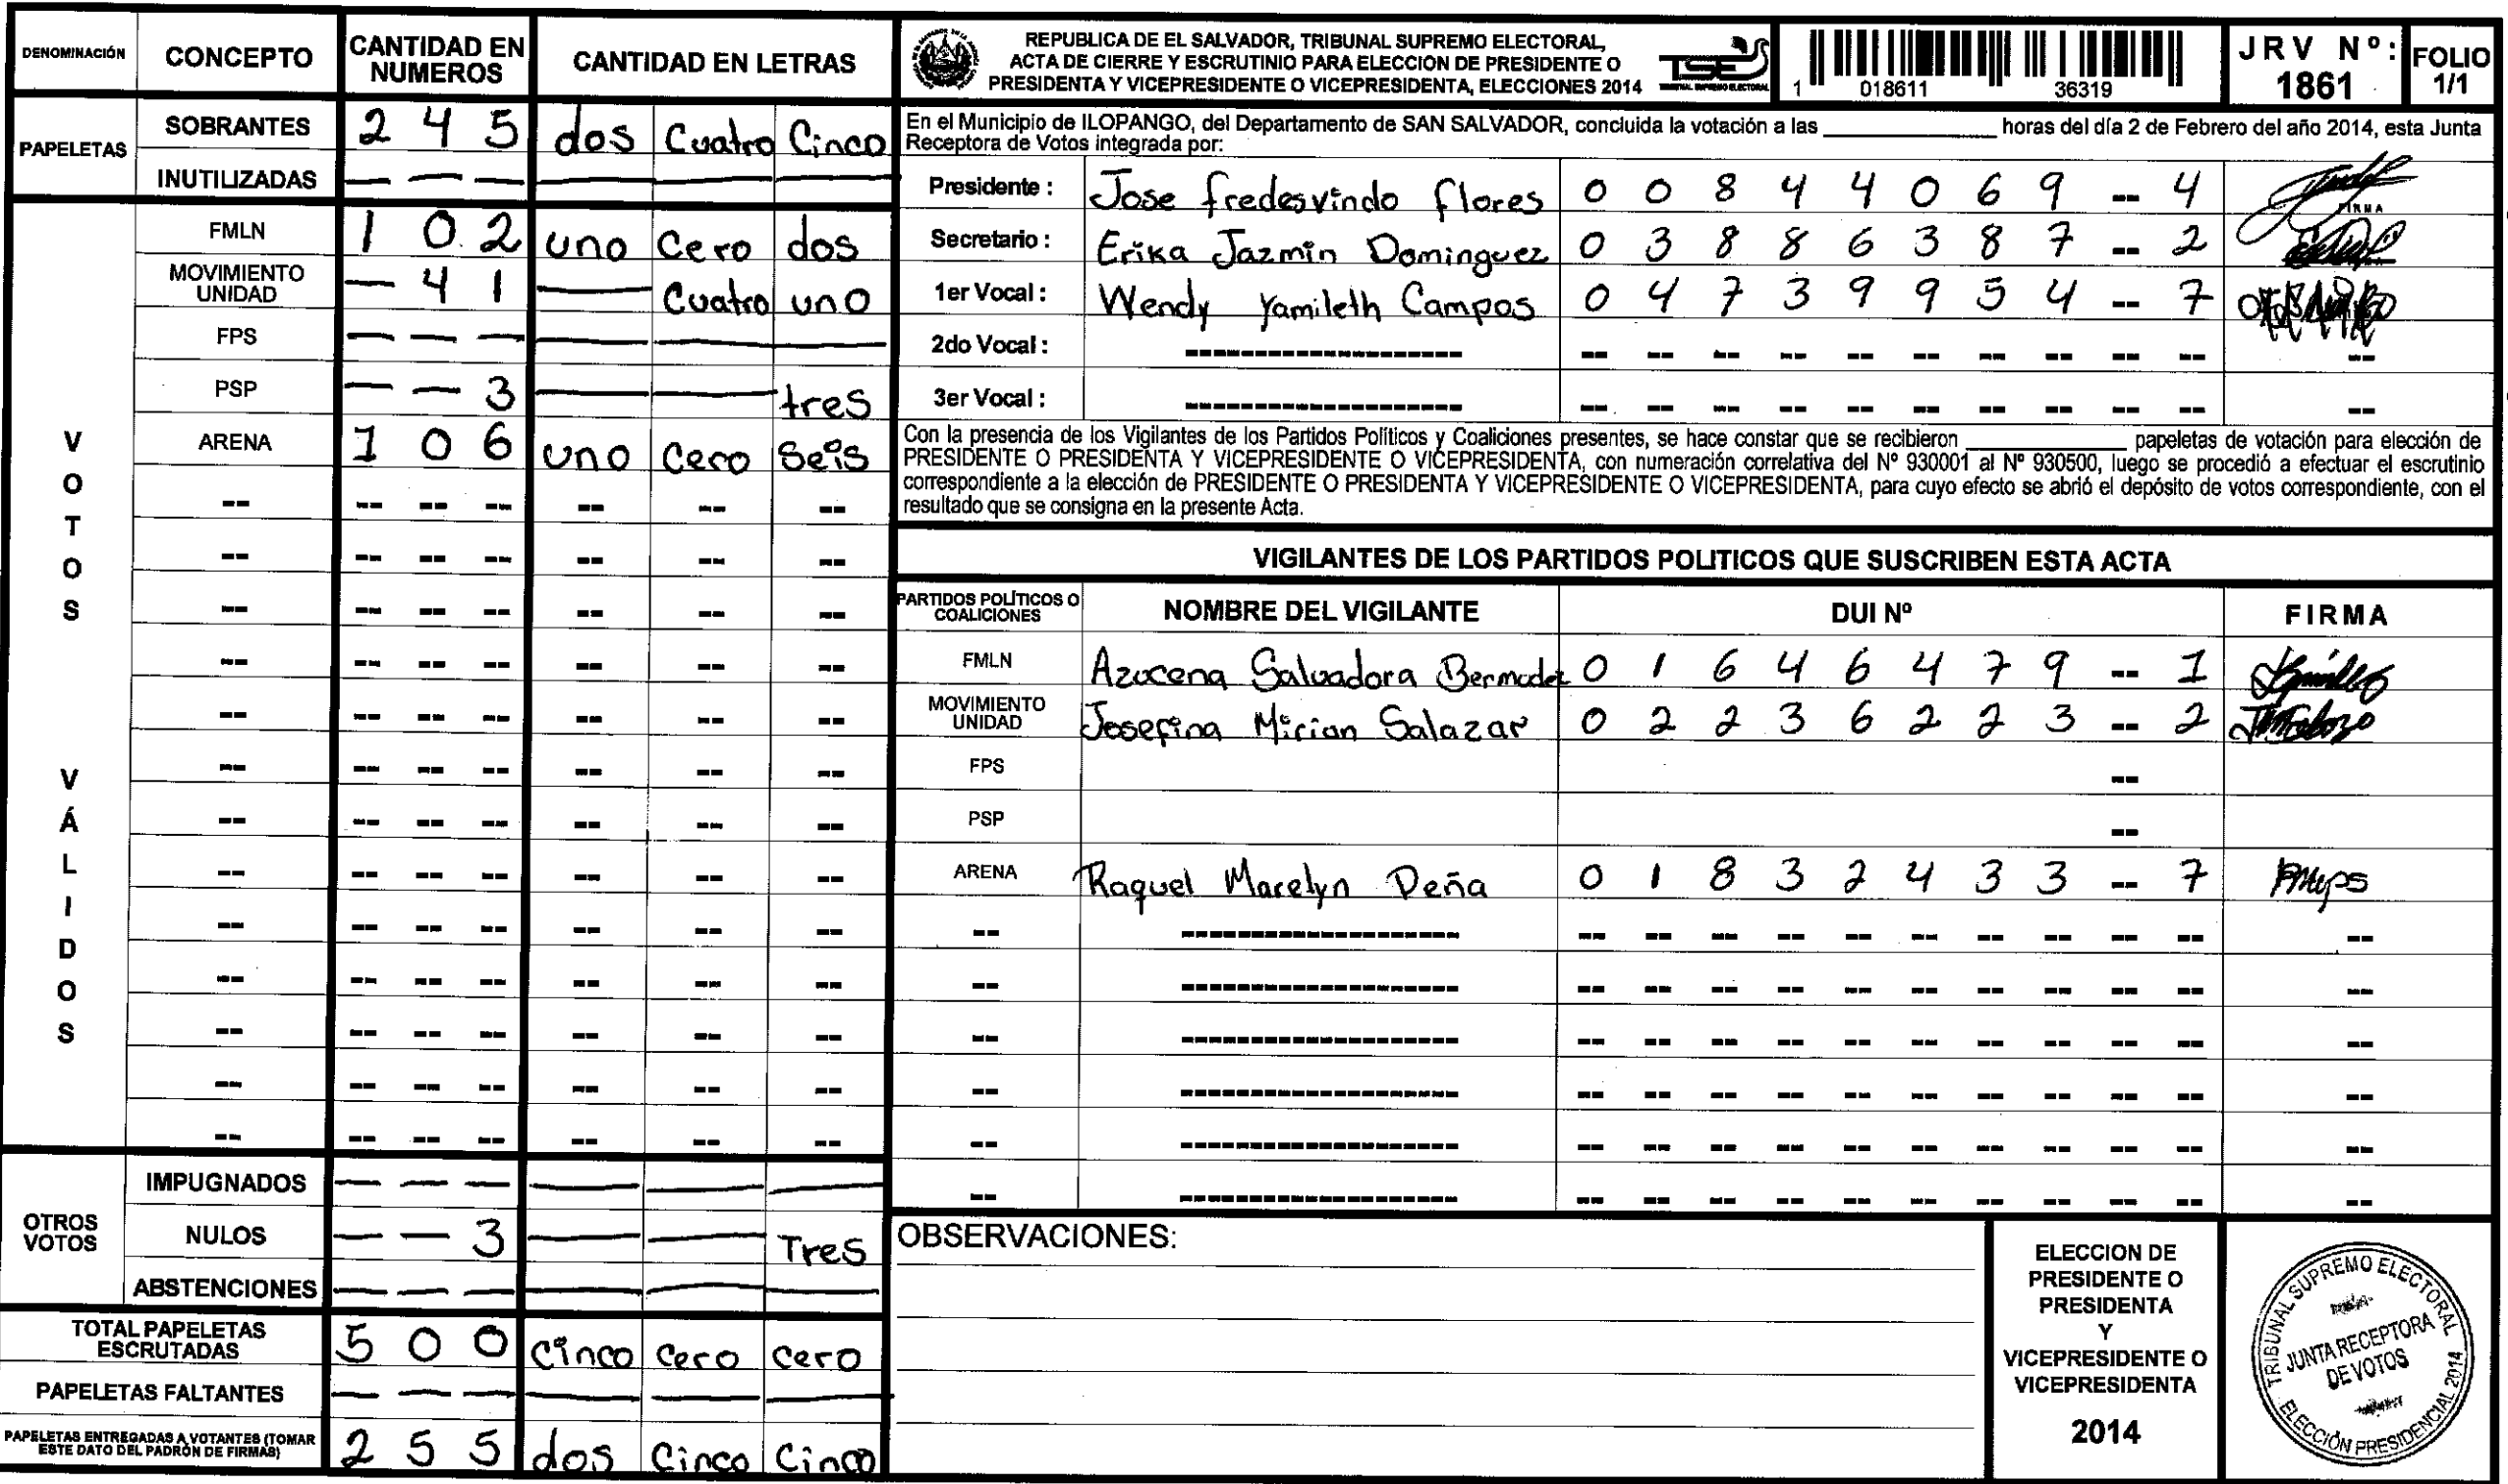 DENOMINACIÓN CONCEPTO CANTIDAD EN NUMEROS CANTIDAD EN LETRAS
PAPELETAS
SOBRANTES 2 4 5 dos Cuatro Cinco
INUTILIZADAS — — — — — —
VOTOS VÁLIDOS
FMLN 1 0 2 uno Cero dos
MOVIMIENTO UNIDAD — 4 1 — Cuatro uno
FPS — — — — — —
PSP — — 3 — — tres
ARENA 1 0 6 uno Cero Seis
-- -- -- -- -- -- --
-- -- -- -- -- -- --
-- -- -- -- -- -- --
-- -- -- -- -- -- --
-- -- -- -- -- -- --
-- -- -- -- -- -- --
-- -- -- -- -- -- --
-- -- -- -- -- -- --
-- -- -- -- -- -- --
-- -- -- -- -- -- --
-- -- -- -- -- -- --
-- -- -- -- -- -- --
-- -- -- -- -- -- --
OTROS VOTOS
IMPUGNADOS — — — — — —
NULOS — — 3 — — Tres
ABSTENCIONES — — — — — —
TOTAL PAPELETAS ESCRUTADAS 5 0 0 cinco cero cero
PAPELETAS FALTANTES — — — — — —
PAPELETAS ENTREGADAS A VOTANTES (TOMAR ESTE DATO DEL PADRÓN DE FIRMAS) 2 5 5 dos Cinco Cinco
REPUBLICA DE EL SALVADOR, TRIBUNAL SUPREMO ELECTORAL,
ACTA DE CIERRE Y ESCRUTINIO PARA ELECCION DE PRESIDENTE O
PRESIDENTA Y VICEPRESIDENTE O VICEPRESIDENTA, ELECCIONES 2014
TSE
TRIBUNAL SUPREMO ELECTORAL
1 018611 36319
JRV Nº: 1861
FOLIO 1/1
En el Municipio de ILOPANGO, del Departamento de SAN SALVADOR, concluida la votación a las ____ horas del día 2 de Febrero del año 2014, esta Junta
Receptora de Votos integrada por:
Presidente : Jose fredesvindo flores 0 0 8 4 4 0 6 9 -- 4
FIRMA
Secretario : Erika Jazmin Dominguez 0 3 8 8 6 3 8 7 -- 2
1er Vocal : Wendy Yamileth Campos 0 4 7 3 9 9 5 4 -- 7
2do Vocal : ------------------ -- -- -- -- -- -- -- -- -- -- --
3er Vocal : ------------------ -- -- -- -- -- -- -- -- -- -- --
Con la presencia de los Vigilantes de los Partidos Políticos y Coaliciones presentes, se hace constar que se recibieron ____ papeletas de votación para elección de
PRESIDENTE O PRESIDENTA Y VICEPRESIDENTE O VICEPRESIDENTA, con numeración correlativa del Nº 930001 al Nº 930500, luego se procedió a efectuar el escrutinio
correspondiente a la elección de PRESIDENTE O PRESIDENTA Y VICEPRESIDENTE O VICEPRESIDENTA, para cuyo efecto se abrió el depósito de votos correspondiente, con el
resultado que se consigna en la presente Acta.
VIGILANTES DE LOS PARTIDOS POLITICOS QUE SUSCRIBEN ESTA ACTA
PARTIDOS POLÍTICOS O COALICIONES NOMBRE DEL VIGILANTE DUI Nº FIRMA
FMLN Azucena Salvadora Bermudez 0 1 6 4 6 4 7 9 -- 1
MOVIMIENTO UNIDAD Josefina Mirian Salazar 0 2 2 3 6 2 2 3 -- 2
FPS --
PSP --
ARENA Raquel Marelyn Peña 0 1 8 3 2 4 3 3 -- 7
-- ------------------ -- -- -- -- -- -- -- -- -- -- --
-- ------------------ -- -- -- -- -- -- -- -- -- -- --
-- ------------------ -- -- -- -- -- -- -- -- -- -- --
-- ------------------ -- -- -- -- -- -- -- -- -- -- --
-- ------------------ -- -- -- -- -- -- -- -- -- -- --
-- ------------------ -- -- -- -- -- -- -- -- -- -- --
OBSERVACIONES:
ELECCION DE
PRESIDENTE O
PRESIDENTA
Y
VICEPRESIDENTE O
VICEPRESIDENTA
2014
TRIBUNAL SUPREMO ELECTORAL
JUNTA RECEPTORA
DE VOTOS
ELECCIÓN PRESIDENCIAL 2014